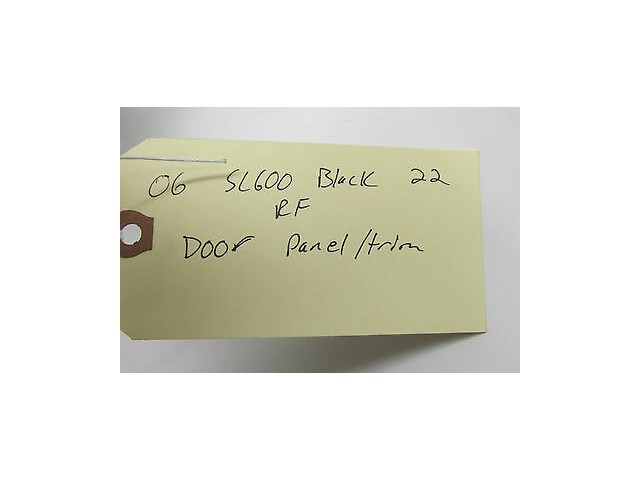 06 SL600 Black 22
RF
Door Panel/trim